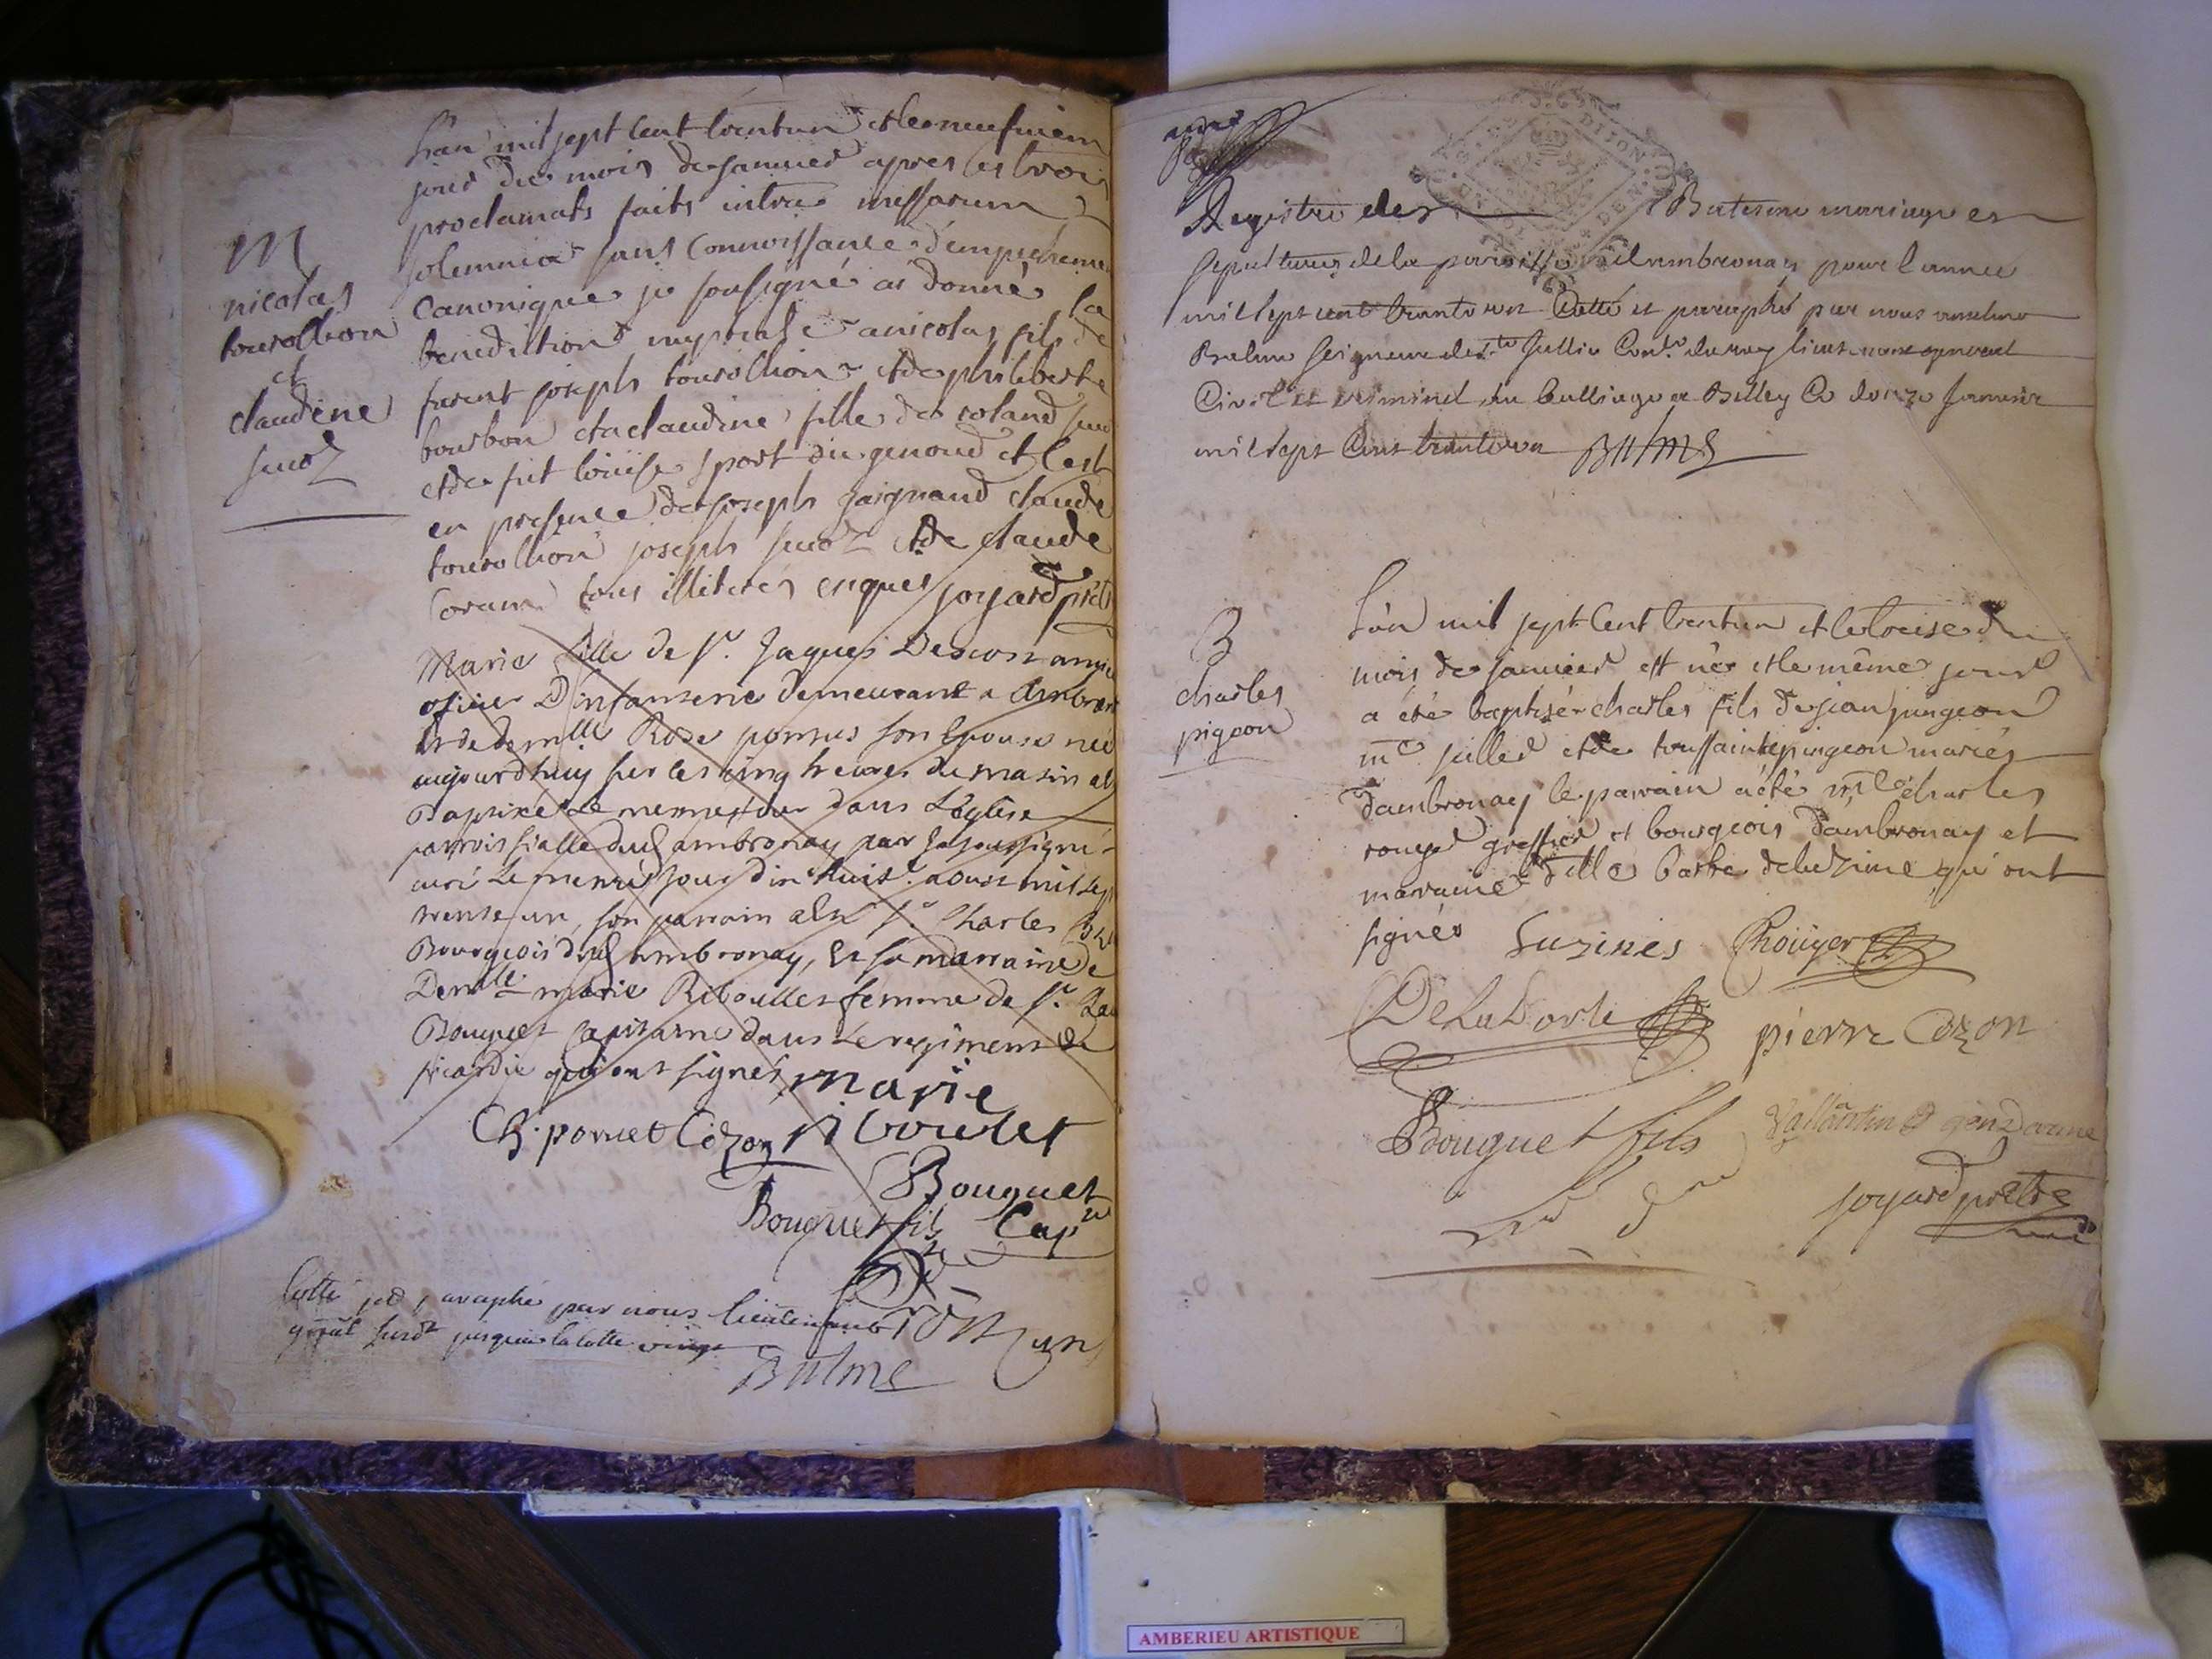 L'an mil sept cent trentun et le neufviem
jour du mois de janvier apres les trois
proclamats faits intra missarum
solemnia sans connoissance d'empecheme
canonique je sousigné ai donné la
benediction nuptiale a nicolas fils de
furent joseph tourollion et de philiberte
bourbon et a claudine fille de roland juod
et de fut loüise sport du genoud et c'est
en presence de joseph gaignand claude
tourollion joseph juod et de claude
coram tous illiterés enquis joyard pretre
M
nicolas
tourollion
et
claudine
juod
Marie fille de Sr. Jaques
officier D'infanterie demeurant a Ambron
et de demlle Rose pornus son Epouse née
aujourdhuy sur les cinq heures du matin et
Baptisée le meme jour dans L'Eglise
parroissialle dud ambronay par Je soussigné
curé Le meme jour dix huit aoust mil sept
trente un, son parrain est Sr. Charles
Bourgeois dud ambronay, Et sa marraine
Demlle marie Riboullet femme de Sr.
Bouquet capitaine dans Le regiment de
picardie qui ont signés marie
Ch. pornet Cozon riboulet
Bouquet
Bouquet fils Cap
Cotté et paraphé par nous lieutenant
gñal susdt jusques la cotte vingt
un
Bulme
Registre des Batesme mariage et
sepultures de la paroisse d'Ambronay pour l'annee
mil sept cent trante un Cotté et paraphé par nous anselme
Balme seigneur de Ste Jullie Conr. du roy lieutenant general
Civil et criminel au balliage de Belley Ce douze Janvier
mil sept Cent trante un Bulme
DIJON
B
charles
pigeon
L'an mil sept cent trentun et le treise du
mois de janvier est né et le même jour
a été baptisé charles fils de jean pingeon
me. et de toussainte pingeon mariés
d'ambronay le parrain a été me charles
rouyer greffier et bourgeois d'ambronay et
marraine dlle barbe deluzine qui ont
signés Luzines Rhoüyer
DeLaporte pierre Cozon
Bouquet fils Vallantin gendarme
joyard pretre
AMBERIEU ARTISTIQUE